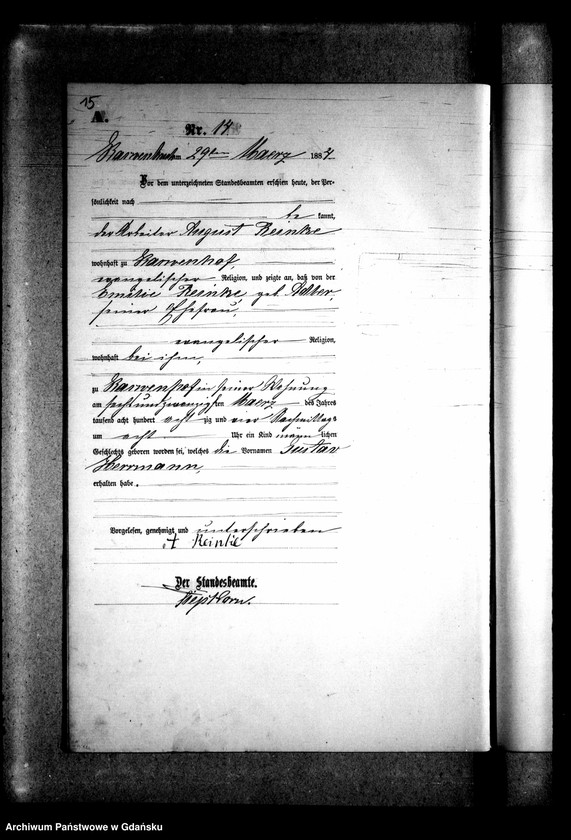 15
A.
Nr. 14
Karwenbruch am 29ten Maerz 1884.
Vor dem unterzeichneten Standesbeamten erschien heute, der Per-
sönlichkeit nach
be kannt,
der Arbeiter August Reinke
wohnhaft zu Karwenhof,
evangelischer Religion, und zeigte an, daß von der
Emilie Reinke geb.
seiner Ehefrau,
evangelischer Religion,
wohnhaft bei ihm,
zu Karwenhof in seiner Wohnung
am sechsundzwanzigsten Maerz des Jahres
tausend acht hundert acht zig und vier Nachmittags
um acht Uhr ein Kind männ lichen
Geschlechts geboren worden sei, welches die Vornamen Gustav
Herrmann,
erhalten habe.
Vorgelesen, genehmigt und unterschrieben
A Reinke
Der Standesbeamte.
Archiwum Państwowe w Gdańsku